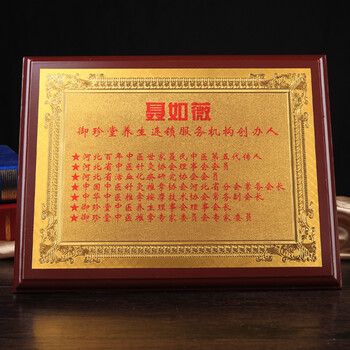 聂如薇
御珍堂养生连锁服务机构创办人
★河北百年中医世家聂氏中医第五代传人
★河北省中医针灸协会理事会会员
★河北省活血化瘀研究协会会员
★中国中医针灸推拿协会河北省分会常务会长
★中华中医推拿按摩技术协会常务副会长
★御珍堂中医养生理事会理事会长
★御珍堂中医推拿专家委员会专家委员